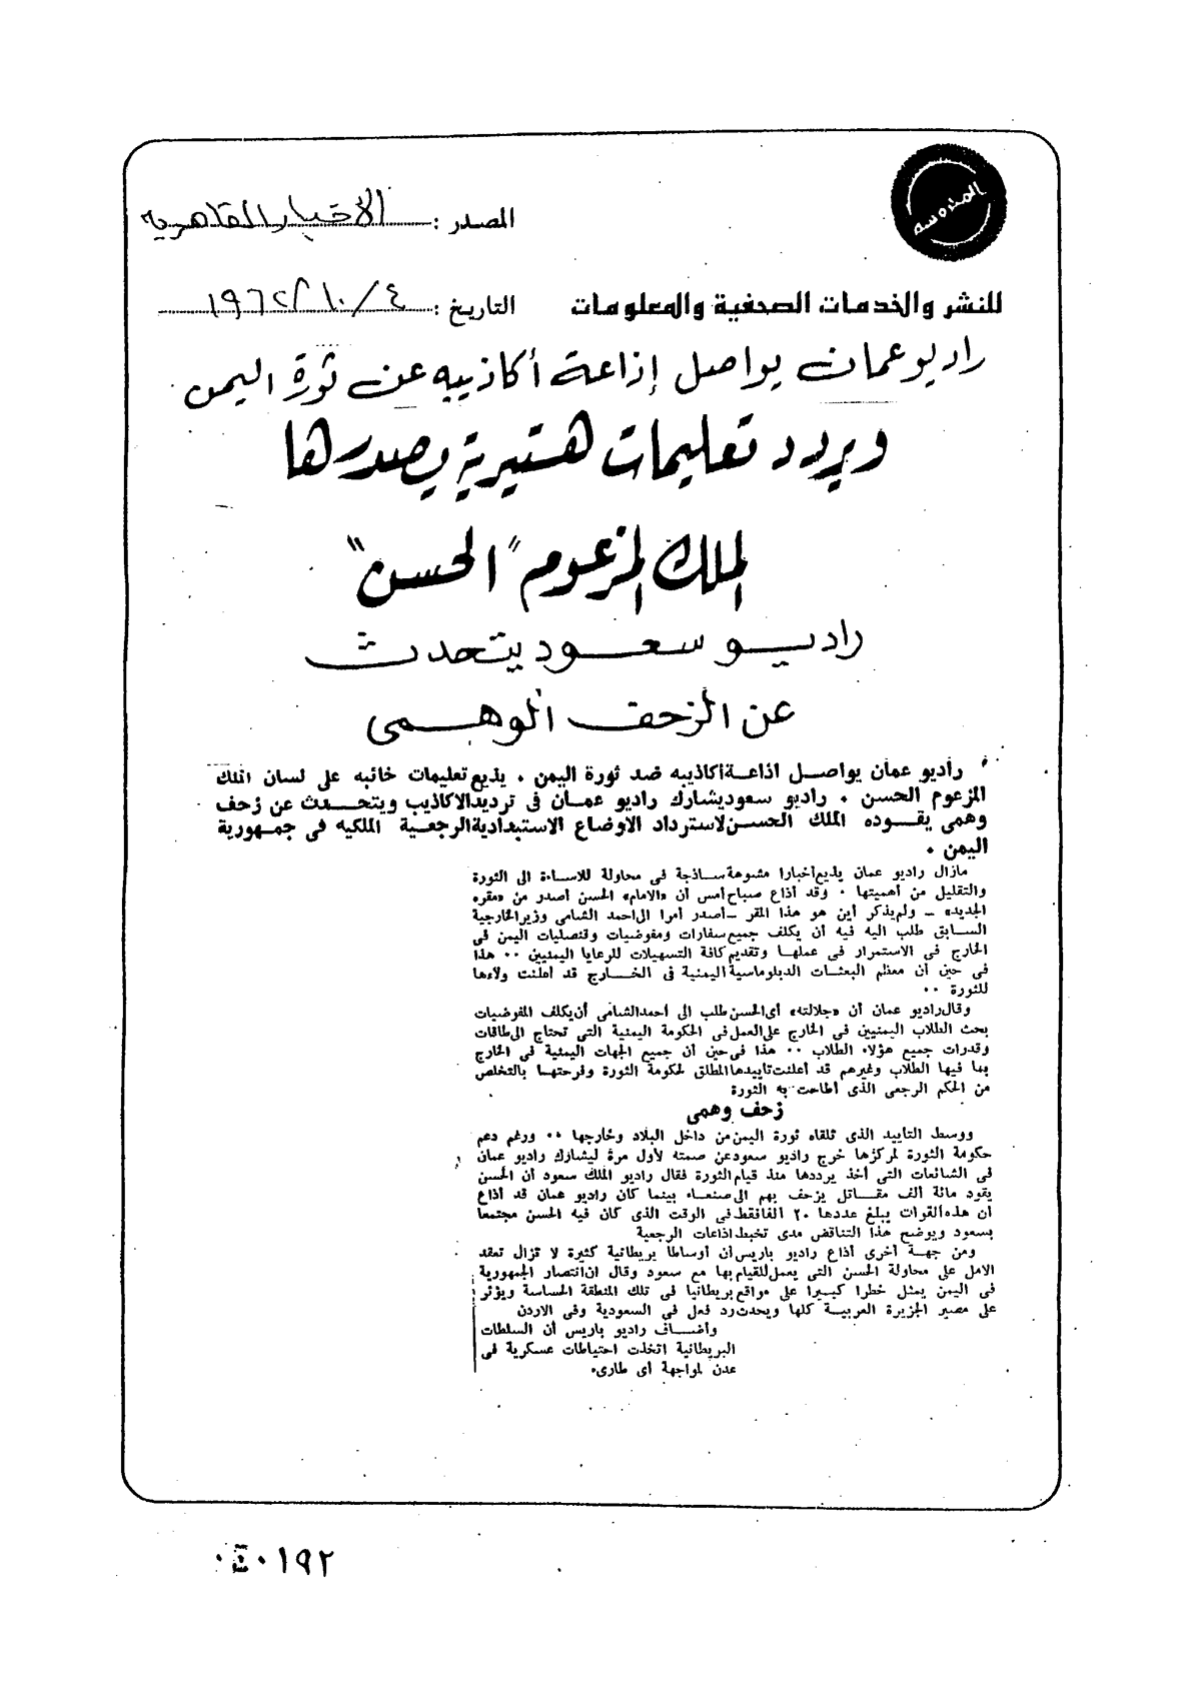 المحروسة
المصدر : الأخبار القاهرية
للنشر والخدمات الصحفية والمعلومات
التاريخ : ٤/ ١٠/ ١٩٦٢
راديو عمان يواصل إذاعة أكاذيبه عن ثورة اليمن
ويردد تعليمات هستيرية يصدرها
الملك المزعوم "الحسن"
راديو سعود يتحدث
عن الزحف الوهمى
راديو عمان يواصل اذاعة أكاذيبه ضد ثورة اليمن . يذيع تعليمات خائبه على لسان الملك
المزعوم الحسن . راديو سعود يشارك راديو عمان فى ترديد الاكاذيب ويتحدث عن زحف
وهمى يقوده الملك الحسن لاسترداد الاوضاع الاستبدادية الرجعية الملكيه فى جمهورية
اليمن .
مازال راديو عمان يذيع أخبارا مشوهة ساذجة فى محاولة للاساءة الى الثورة
والتقليل من أهميتها . وقد أذاع صباح أمس أن «الامام» الحسن أصدر من «مقره
الجديد» ـ ولم يذكر أين هو هذا المقر ـ أصدر أمرا الى احمد الشامى وزير الخارجية
السابق طلب اليه فيه أن يكلف جميع سفارات ومفوضيات وقنصليات اليمن فى
الخارج فى الاستمرار فى عملها وتقديم كافة التسهيلات للرعايا اليمنيين .. هذا
فى حين أن معظم البعثات الدبلوماسية اليمنية فى الخارج قد أعلنت ولاءها
للثورة ..
وقال راديو عمان أن «جلالته» أى الحسن طلب الى أحمد الشامى أن يكلف المفوضيات
بحث الطلاب اليمنيين فى الخارج على العمل فى الحكومة اليمنية التى تحتاج الى طاقات
وقدرات جميع هؤلاء الطلاب .. هذا فى حين أن جميع الجهات اليمنية فى الخارج
بما فيها الطلاب وغيرهم قد أعلنت تأييدها المطلق لحكومة الثورة وفرحتها بالتخلص
من الحكم الرجعى الذى أطاحت به الثورة
زحف وهمى
ووسط التأييد الذى تلقاه ثورة اليمن من داخل البلاد وخارجها .. ورغم دعم
حكومة الثورة لمركزها خرج راديو سعود عن صمته لأول مرة ليشارك راديو عمان
فى الشائعات التى أخذ يرددها منذ قيام الثورة فقال راديو الملك سعود أن الحسن
يقود مائة ألف مقاتل يزحف بهم الى صنعاء بينما كان راديو عمان قد أذاع
أن هذه القوات يبلغ عددها ٢٠ الفا فقط فى الوقت الذى كان فيه الحسن مجتمعا
بسعود ويوضح هذا التناقض مدى تخبط اذاعات الرجعية
ومن جهة أخرى أذاع راديو باريس أن أوساطا بريطانية كثيرة لا تزال تعقد
الامل على محاولة الحسن التى يعمل للقيام بها مع سعود وقال ان انتصار الجمهورية
فى اليمن يمثل خطرا كبيرا على مواقع بريطانيا فى تلك المنطقة الحساسة ويؤثر
على مصير الجزيرة العربية كلها ويحدث رد فعل فى السعودية وفى الاردن
وأضاف راديو باريس أن السلطات
البريطانية اتخذت احتياطات عسكرية فى
عدن لمواجهة أى طارىء